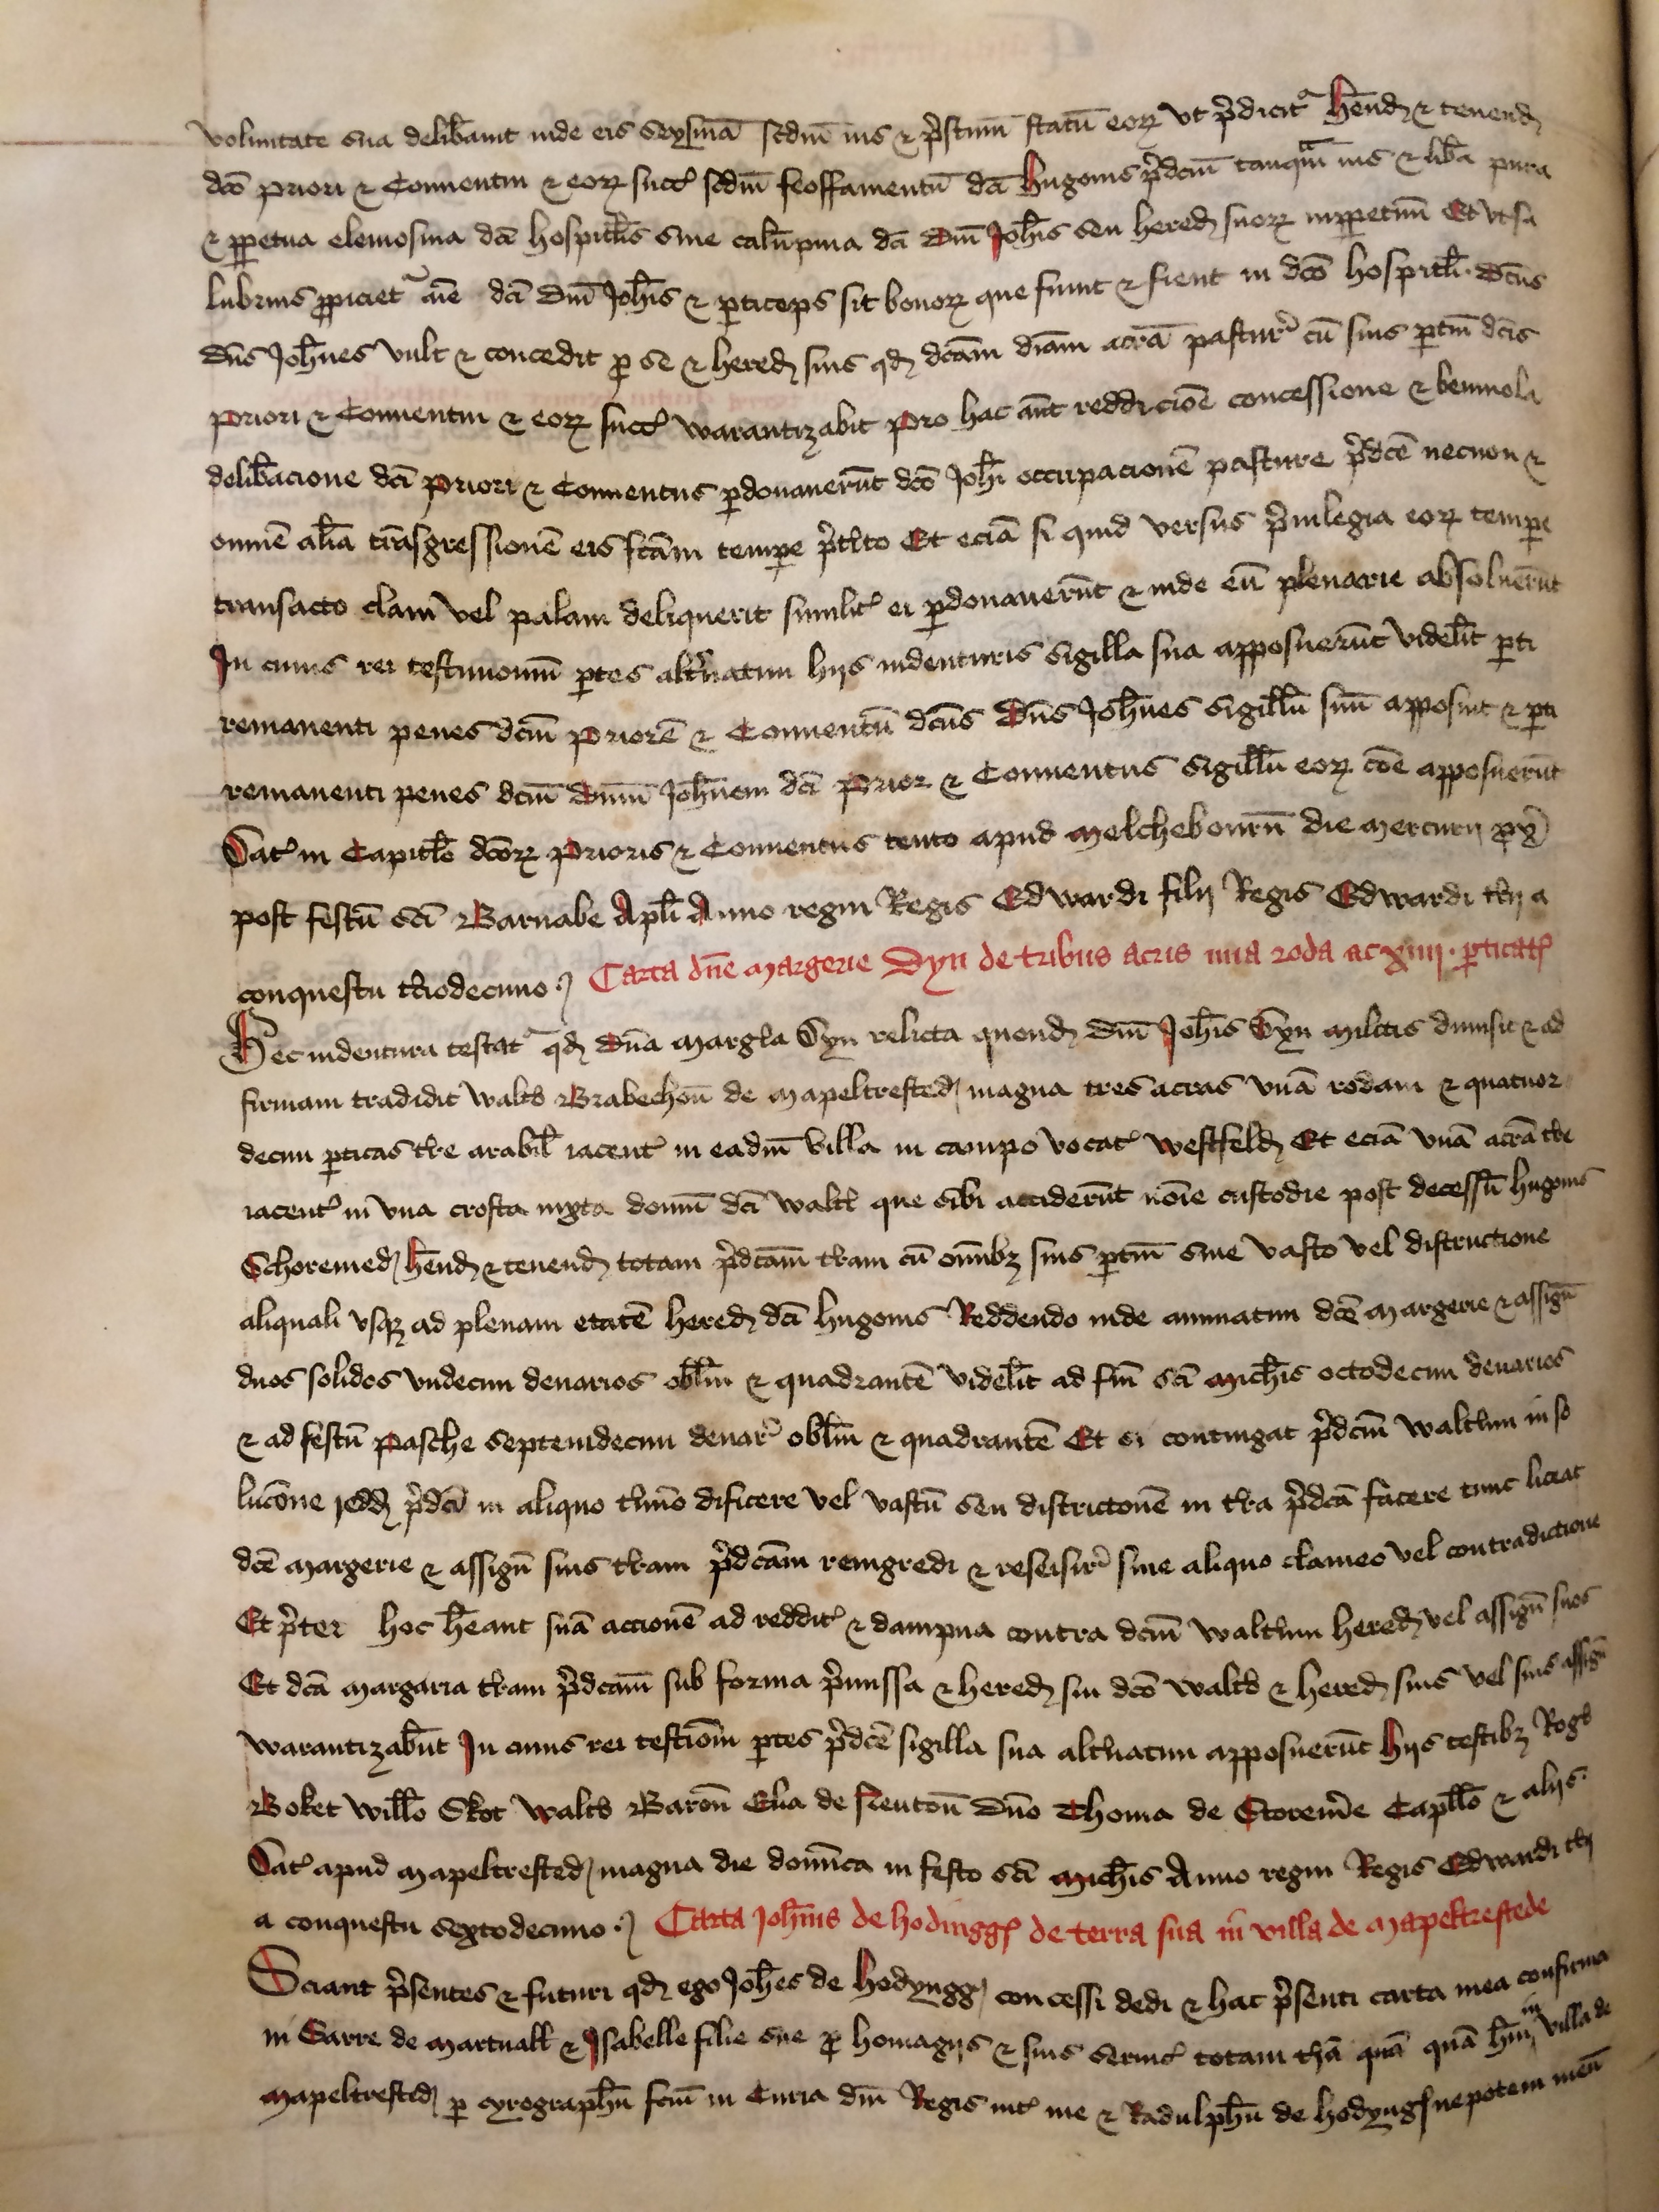 voluntate sua delib̄auit inde eis seysinā scdm̄ ius & p̄stinū statū eoꝝ vt p̄dicit᷑ Hēnd & tenend
dc̄o Priori & Conuentui & eoꝝ succ̄ scdm̄ feoffamentū dc̄i Hugonis p̄dc̄m tanqͣm ius & lib̄a pura
& ꝑpetua elemosina dc̄i hospitlis̄ sine calūpnia dc̄i Dn̄i Joh̄is seu hered suoꝝ inꝑpetuū Et vt sa
lubrius ꝓpiciet᷑ aīe dc̄i Dn̄i Joh̄is & ꝑticeps sit bonoꝝ que fiunt & fient in dc̄o hospitl̄i dc̄us
Dn̄s Joh̄nes vult & concedit ꝓ se & hered suis qd dc̄am diām acrā pastur̄ cū suis ꝑtin̄ dc̄is
Priori & Conuentui & eoꝝ succ̄ warantizabit Pro hac aūt reddicōe concessione & beniuola
delib̄acione dc̄i Priori & Conuentus ꝑdonauerūt dc̄o Joh̄i occupacionē pasture p̄dc̄e necnon &
omnē alīa trāsgressionē eis fc̄am tempe p̄t̄ito Et eciā si quid versus p̄uilegia eoꝝ tempe
transacto clam vel palam deliquerit similit᷑ ei ꝑdonauerūt & inde eū plenarie absoluerūt
In cuius rei testimoniū ꝑtes alt̄natim hijs indenturis sigilla sua apposuerūt videlīt ꝑti
remanenti penes dc̄m Priorē & Conuentū dc̄us Dn̄s Joh̄nes sigillū suū apposuit & ꝑti
remanenti penes dc̄m Dn̄m Joh̄nem dc̄i Prior & Conuentus sigillū eoꝝ cōe apposuerūt
Dat᷑ in Capitl̄o dc̄oꝝ Prioris & Conuentus tento apud Melchebourn̄ die Mercurij ꝓx̄
post festū sc̄i Barnabe Apl̄i Anno regni Regis Edwardi filij Regis Edwardi t̄cij a
conquestu t̄ciodecimo Carta dn̄e Margerie Dyn de tribus acris una roda ac xiiij ꝑticat᷑
Hec indentura testat᷑ qd Dn̄a Marḡia Dyn relicta quond Dn̄i Joh̄is Dyn Militis dimisit & ad
firmam tradidit Walt̄o Brabechon̄ de Mapeltrested magna tres acras vnā rodam & quatuor
decim ꝑticas t̄re arabil̄ iacent᷑ in eadm̄ villa in campo vocat᷑ Westfeld Et eciā vnā acrā t̄re
iacent᷑ in vna crofta iuxta domū dc̄i Walt̄i que sibi acciderūt nōie custodie post decessū Hugonis
Schoremed Hēnd & tenend totam p̄dc̄am t̄ram cū om̄ibꝫ suis ꝑtin̄ sine vasto vel distructione
aliquali vsqꝫ ad plenam etatē hered dc̄i Hugonis Reddendo inde annuatim dc̄e Margerie & assign̄
duos solidos vndecim denarios obl̄m & quadrantē videlīt ad fm̄ sc̄i Mich̄is octodecim denarios
& ad festū Pasche septemdecim denar̄ obl̄m & quadrantē Et si contingat p̄dc̄m Walt̄um in so
lucōne redd p̄dc̄i in aliquo t̄mīo dificere vel vastū seu districtionē in t̄ra p̄dc̄a facere tunc liceat
dc̄e Margerie & assign̄ suis t̄ram p̄dc̄am reingredi & reseisir̄ sine aliquo clameo vel contradictione
Et p̄ter hoc hēant suā accionē ad reddit᷑ & dampna contra dc̄m Walt̄um hered vel assign̄ suos
Et dc̄a Margaria t̄ram p̄dc̄am sub forma p̄missa & hered sui dc̄o Walt̄o & hered suis vel suis assign̄
warantizab̄nt In cuius rei testiōm ꝑtes p̄dc̄e sigilla sua alt̄natim apposuerūt Hijs testibꝫ Roḡo
Boket Willo̅ Skot Walt̄o Baron̄ Eu̅a de Fientoū Dn̄o Thoma de Storem̄e Capll̄o & alijs
Dat᷑ apud Mapeltrested magna die domīca in festo sc̄i Mich̄is Anno regni Regis Edwardi t̄cij
a conquestu sextodecimo Carta Joh̄nis de Hodingg᷑ de terra sua in villa de Mapeltrestede
Sciant p̄sentes & futuri qd ego Joh̄es de Hodyngg concessi dedi & hac p̄senti carta mea confirma
ui Sarre de Martuall & Isabelle filie sue ꝓ homagijs & suis seruic᷑ totam t̄rā quā quā hūi in villa de
Mapeltrested ꝑ cyrographū fc̄m in Curia dn̄i Regis int᷑ me & Radulphū de Hodyng᷑ nepotem meū